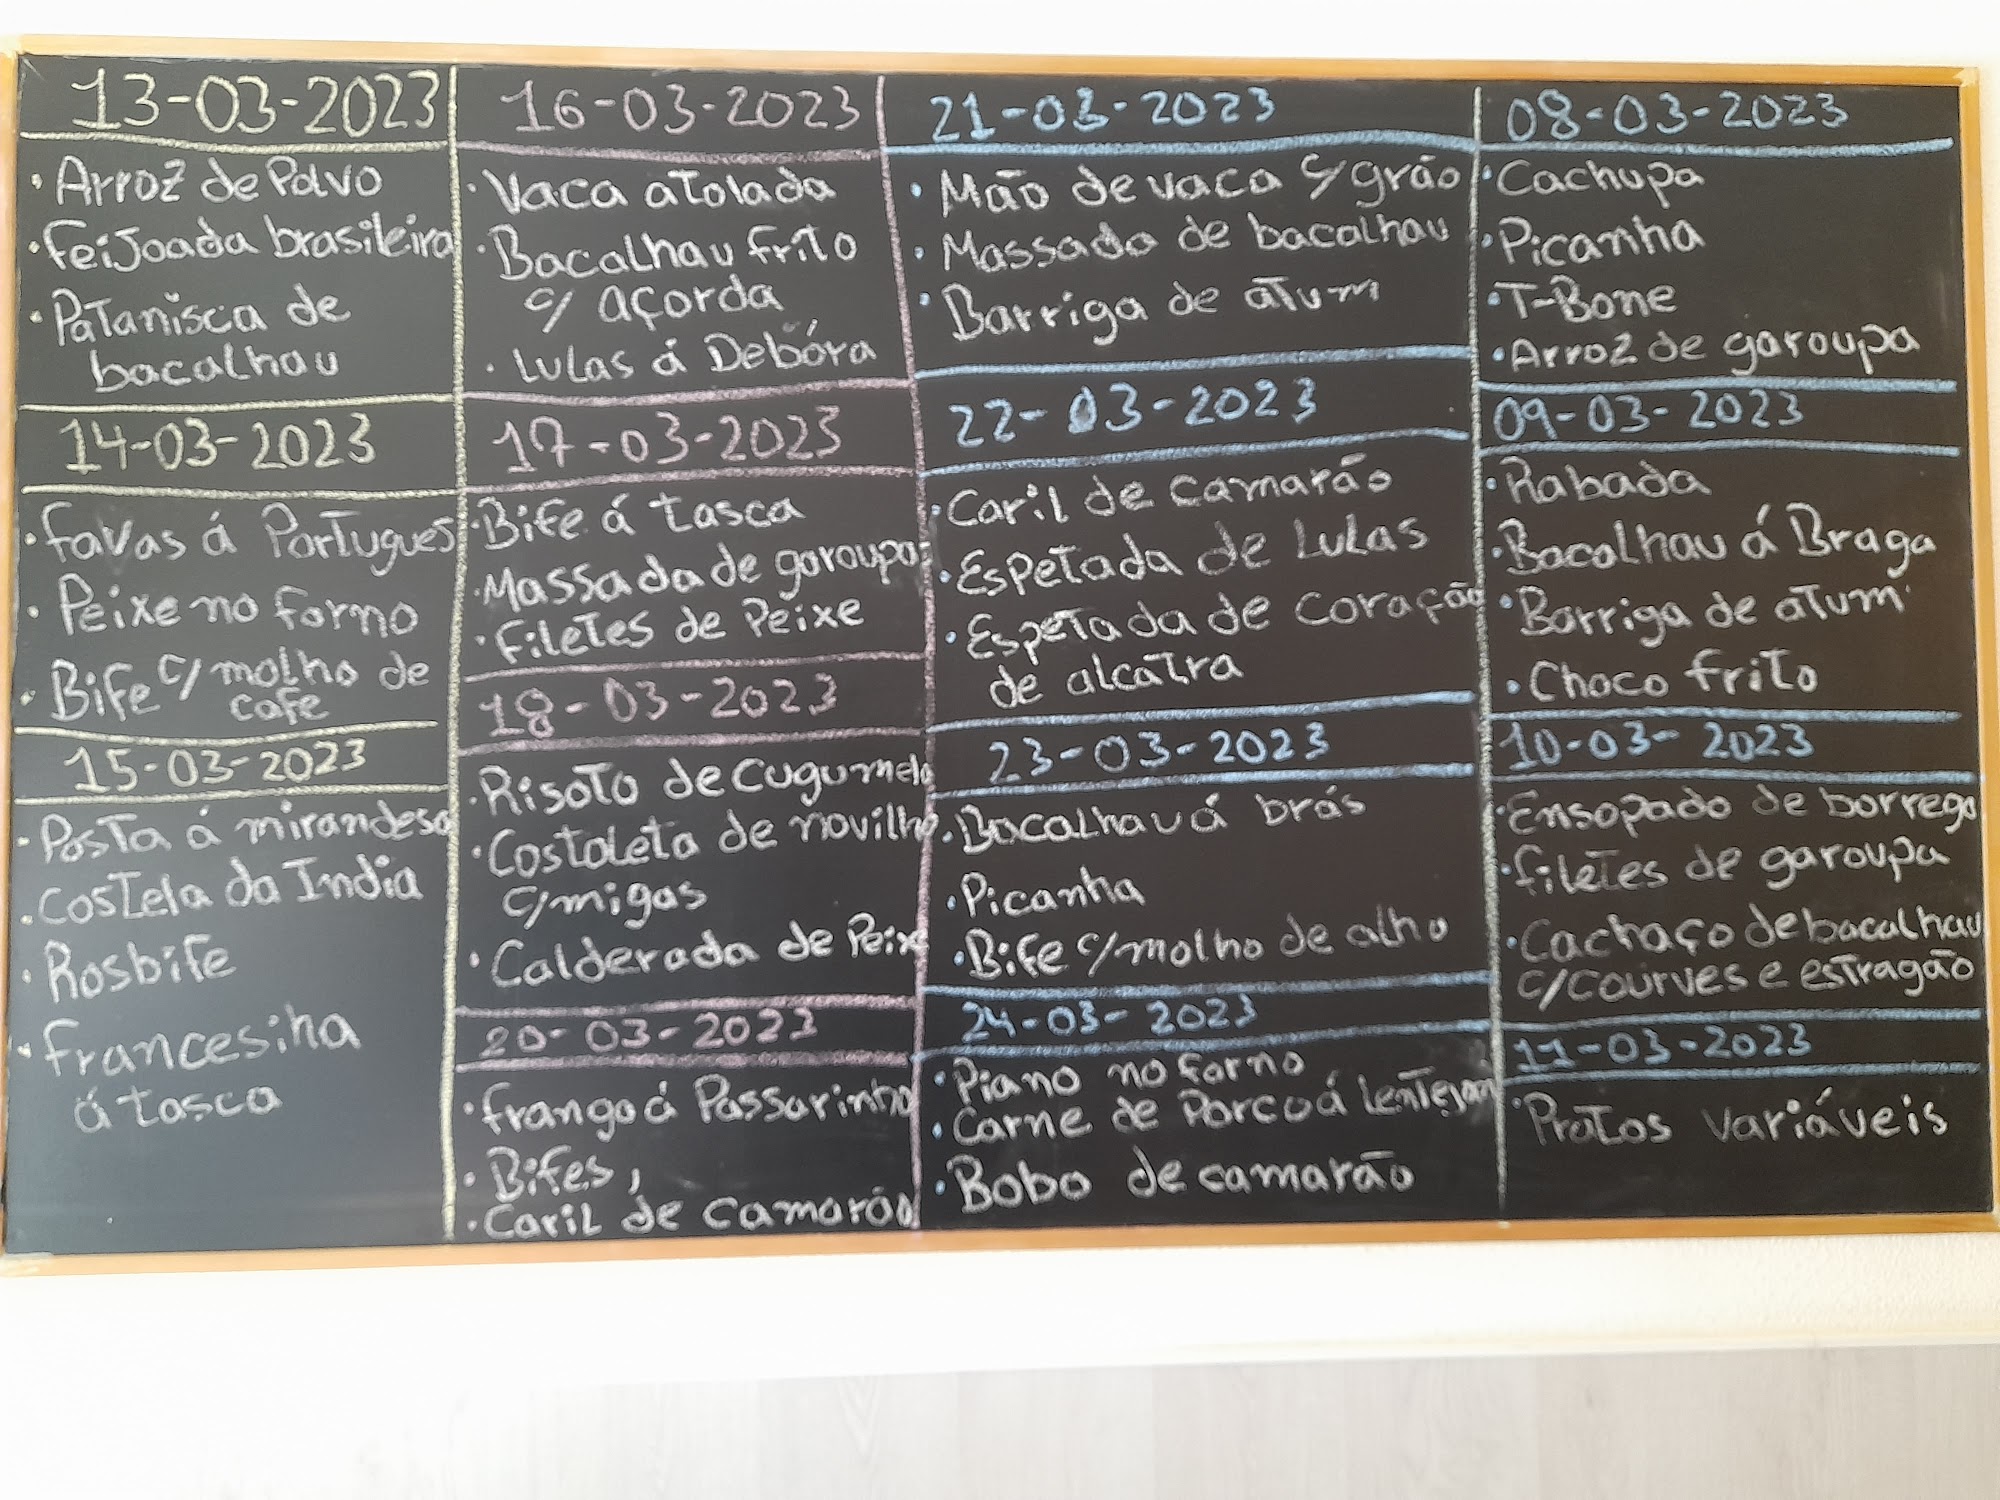 13-03-2023
• Arroz de Polvo
• Feijoada brasileira
• Patanisca de
bacalhau
14-03-2023
• Favas á Portugues
• Peixe no forno
• Bife c/ molho de
cafe
15-03-2023
• Posta á mirandesa
• Costela da India
• Rosbife
• Francesiha
á tasca
16-03-2023
• Vaca atolada
• Bacalhau frito
c/ açorda
• Lulas á Debóra
17-03-2023
• Bife á tasca
• Massada de garoupa
• Filetes de Peixe
18-03-2023
• Risoto de cugumelo
• Costoleta de novilho
c/migas
• Calderada de Peixe
20-03-2023
• frango á Passarinho
• Bifes,
• Caril de camarão
21-03-2023
• Mão de vaca c/ grão
• Massada de bacalhau
• Barriga de atum
22-03-2023
• Caril de camarão
• Espetada de Lulas
• Espetada de coração
de alcatra
23-03-2023
• Bacalhau á brás
• Picanha
• Bife c/molho de alho
24-03-2023
• Piano no forno
• Carne de Porco á Lentejana
• Bobo de camarão
08-03-2023
• Cachupa
• Picanha
• T-Bone
• Arroz de garoupa
09-03-2023
• Rabada
• Bacalhau á Braga
• Barriga de atum
• Choco frito
10-03-2023
• Ensopado de borrego
• filetes de garoupa
• Cachaço de bacalhau
c/courves e estragão
11-03-2023
• Pratos variáveis